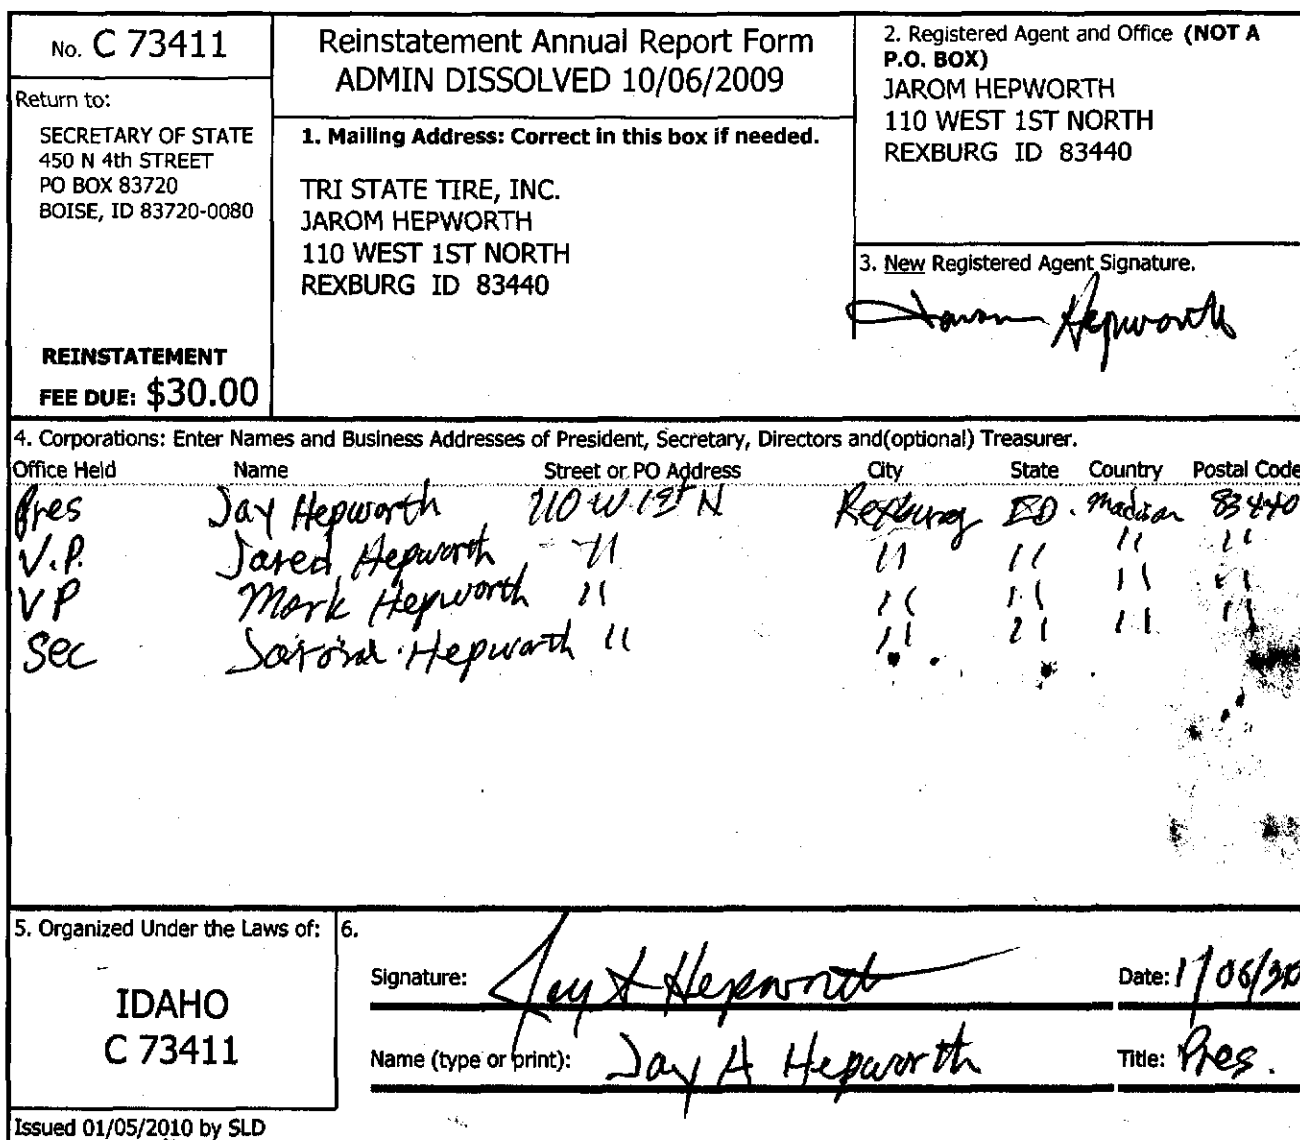 No. C 73411
Return to:
SECRETARY OF STATE
450 N 4th STREET
PO BOX 83720
BOISE, ID 83720-0080
REINSTATEMENT
FEE DUE: $30.00
Reinstatement Annual Report Form
ADMIN DISSOLVED 10/06/2009
1. Mailing Address: Correct in this box if needed.
TRI STATE TIRE, INC.
JAROM HEPWORTH
110 WEST 1ST NORTH
REXBURG ID 83440
2. Registered Agent and Office (NOT A
P.O. BOX)
JAROM HEPWORTH
110 WEST 1ST NORTH
REXBURG ID 83440
3. New Registered Agent Signature.
Jarom Hepworth
4. Corporations: Enter Names and Business Addresses of President, Secretary, Directors and(optional) Treasurer.
Office Held Name Street or PO Address City State Country Postal Code
Pres Jay Hepworth 110 W. 1st N Rexburg ID. Madison 83440
V.P. Jared Hepworth " " " " "
VP Mark Hepworth " " " " "
Sec Hepworth " " " " "
5. Organized Under the Laws of:
IDAHO
C 73411
6.
Signature: Jay A Hepworth
Date: 1/06/
Name (type or print): Jay A Hepworth
Title: Pres.
Issued 01/05/2010 by SLD